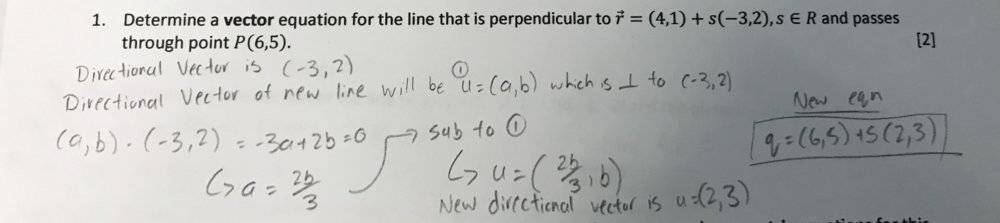 1. Determine a vector equation for the line that is perpendicular to r⃗ = (4,1) + s(−3,2), s ∈ R and passes
through point P(6,5). [2]
Directional Vector is (-3,2)
Directional Vector of new line will be ① u⃗=(a,b) which is ⊥ to (-3,2)
(a,b)·(-3,2) = -3a+2b=0
↳ a = 2b/3
→ sub to ①
↳ u=(2b/3, b)
New directional vector is u=(2,3)
New eqn
q=(6,5)+s(2,3)